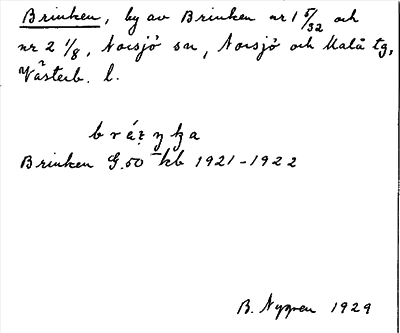 Brinken, by av Brinken nr 1 5/32 och
nr 2 1/8, Norsjö sn, Norsjö och Malå tg,
Västerb. l.
Brinken G.50 kb 1921-1922
B. Nygren 1929